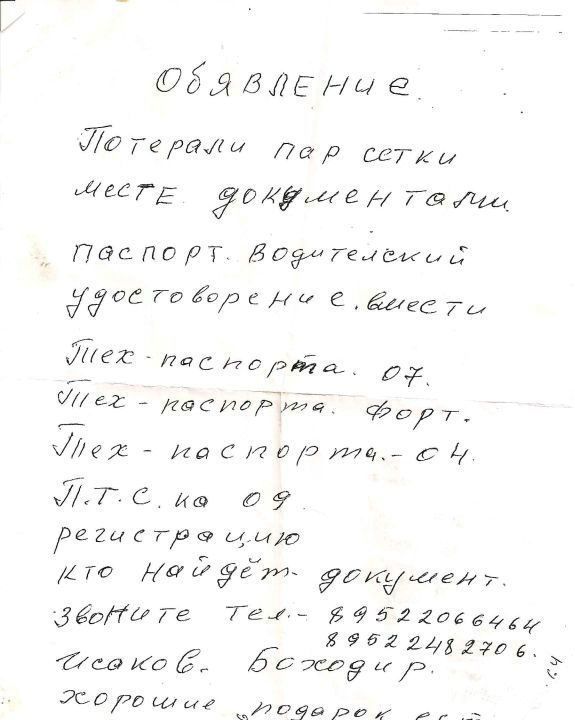 Обявление.
Потерали пар сетки
месте. документами.
паспорт. Водителский
удостоворение. вмести
Тех-паспорта. 07.
Тех-паспорта. форт.
Тех-паспорта.-04.
П.Т.С. на 09
регистрацию
кто найдёт- документ.
звоните тел.- 89522066464
89522482706.
Исаков. Боходир.
хорошие подарок есть